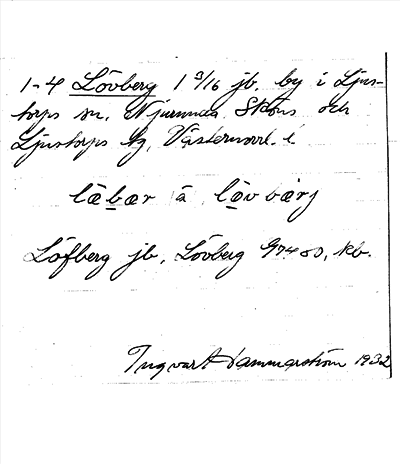 1-4 Lövberg 1 3/16 jb. by i Ljus-
torps sn, Njurunda, Sköns och
Ljustorps tg, Västernorrl. l
låbær å lövbærj
Löfberg jb, Lövberg GK, kb.
Ingvar Hammarström 1932